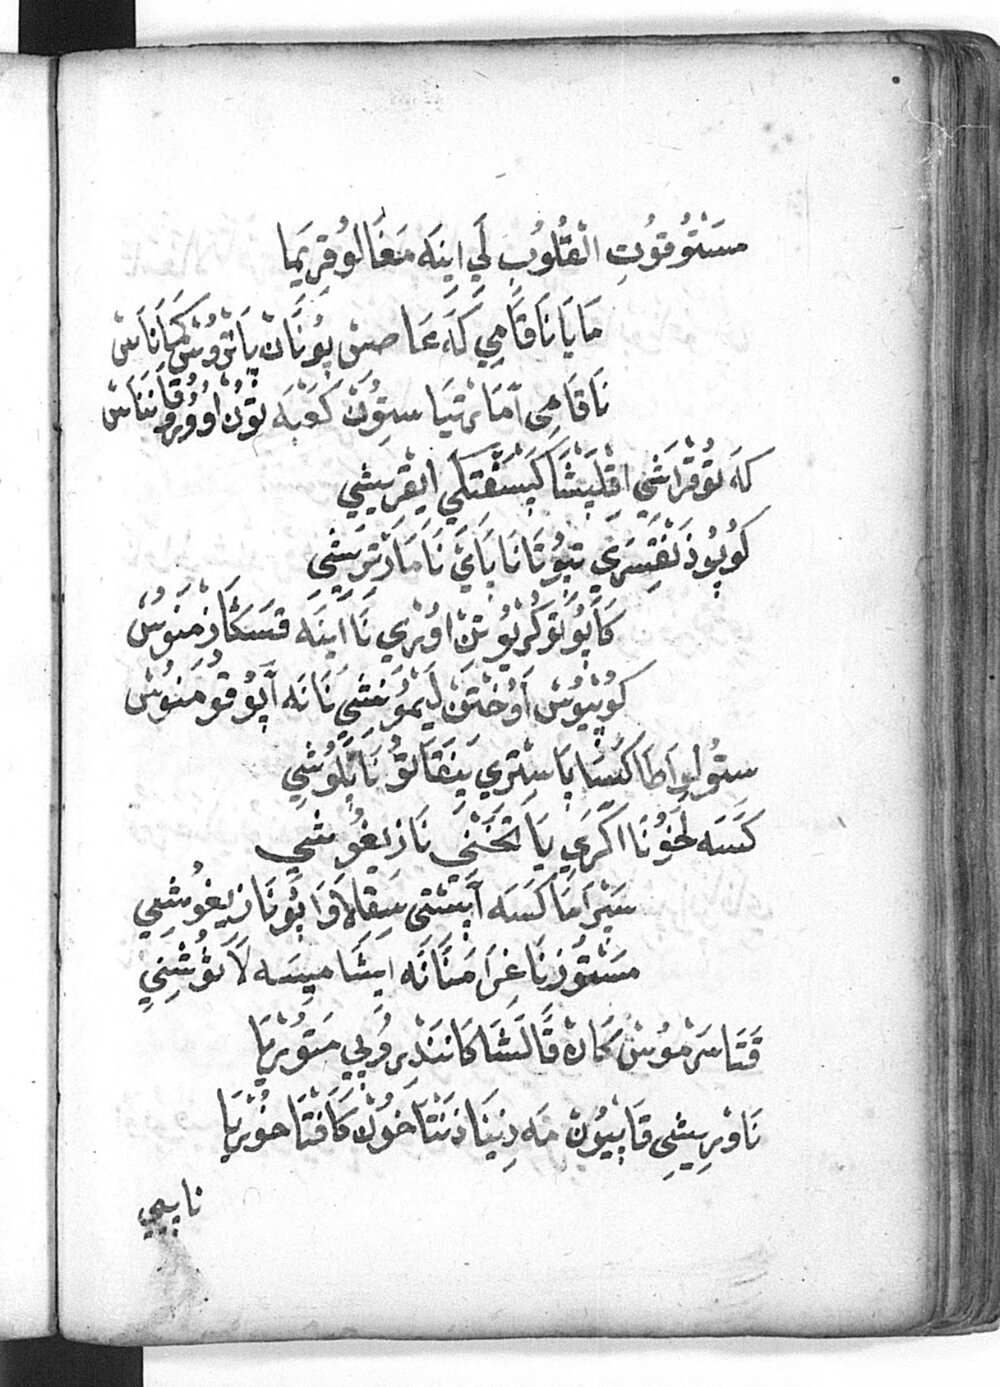 مسَتْوُ قوُتِ الْقُلُوبِ لَيِ اِينَه مَغَالوُ قِرِيَما
مَايَا نَاقَامِي كَه عَاصِسْ پوُنَانْ پَاتْروُسْ كَيَانَاسْ
نَاقَامِى آمَارْتِيَا ستوُنْ كَعْبَه تُونْ اوُوُرَقَانَنَاسْ
كَه توُقْرَاسِي اقْلَيِيشَا كَيَسَفْتَكِي ايقِرِيشِي
كوُپوُ ذَنْفَتِسَرَي تيپوُتَا نَاپَايَ نَامَارْتِرِيشِي
كَاپوُتوُكُرْيوُتِنْ اوُرَي نَا اينَه قسَكَازْمَنوُسْ
كوُيْيوُسْ اَوُخْتِنْ لَيْموُنِشَي نَانَه آپوُقوُمَنوُسْ
ستوُ لِوَاطَا كُسَا پَاستِرِي يَنِقَا لتوُ نَاپَلوُشِي
كَسَه لَخوُنَا اكَرَي يَا تَخَنِي نَازِيغوُشِي
سَيْرَامَا كَسَه آپِسْتِي سِقِلاَ وَاپوُ نَازِيغوُشِي
مسَتْوُزْنَا غِرَامَنَانَه ايشَا ميسَه لاَتوُشِنِي
قَتَاسَرْموُسْ كَاذَه قَالَشَا كَانَنْذِروُپِي مَتوُرْيَا
نَاوْرِيشِي قَاپيوُنْ مَه دِينَا ذَنْتَاخوُنْ كَافْتَا خوُرْيَا
ناپيي